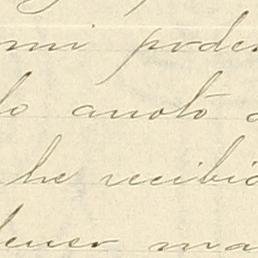 mi poder
lo anoto
he recibid
tener ma